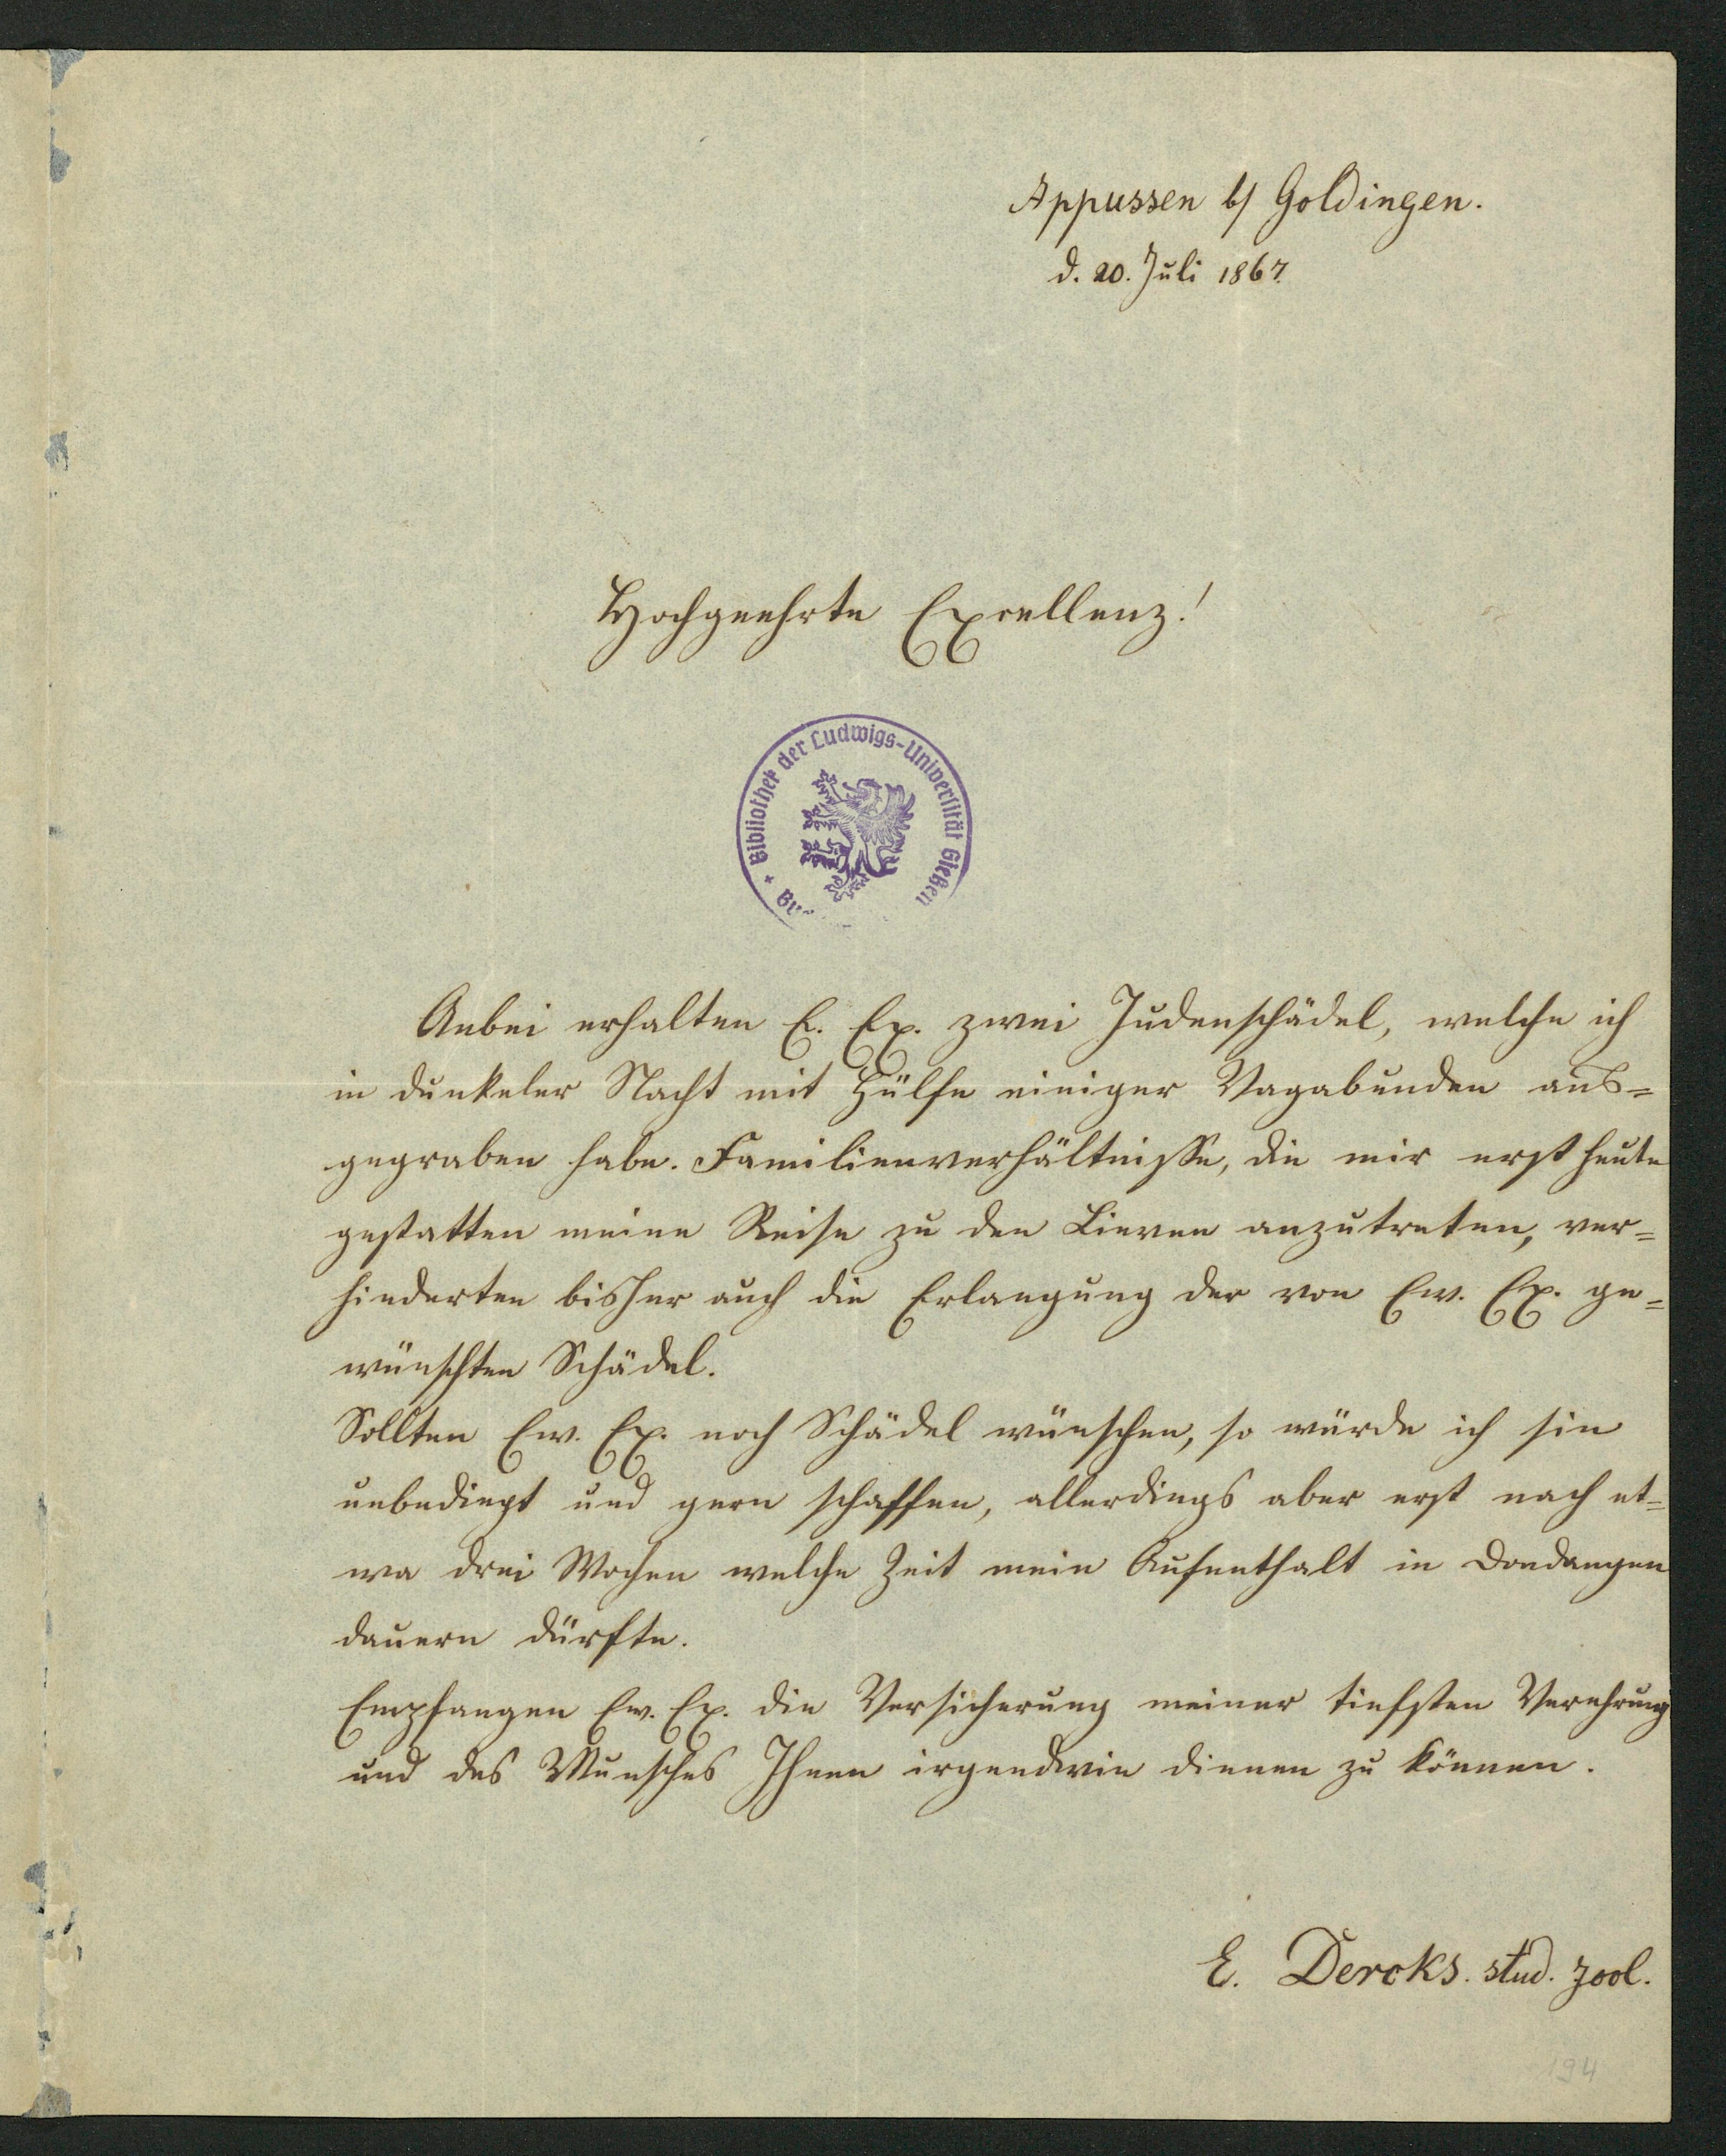 Appussen b/ Goldingen.
d. 20. Juli 1867.
Hochgeehrte Excellenz!
+ Bibliothek der Ludwigs-Universität Gießen
Anbei erhalten E. Ex. zwei Judenschädel, welche ich
in dunkeler Nacht mit Hülfe einiger Vagabunden aus=
gegraben habe. Familienverhältnisse, die mir erst heute
gestatten meine Reise zu den Lieven anzutreten, ver=
hinderten bisher auch die Erlangung der von Ew. Ex. ge=
wünschten Schädel.
Sollten Ew. Ex. noch Schädel wünschen, so würde ich sie
unbedingt und gern schaffen, allerdings aber erst nach et=
wa drei Wochen welche Zeit mein Aufenthalt in Dondangen
dauern dürfte.
Empfangen Ew. Ex. die Versicherung meiner tiefsten Verehrung
und des Wunsches Ihnen irgendwie dienen zu können.
E. Dercks. stud. zool.
194